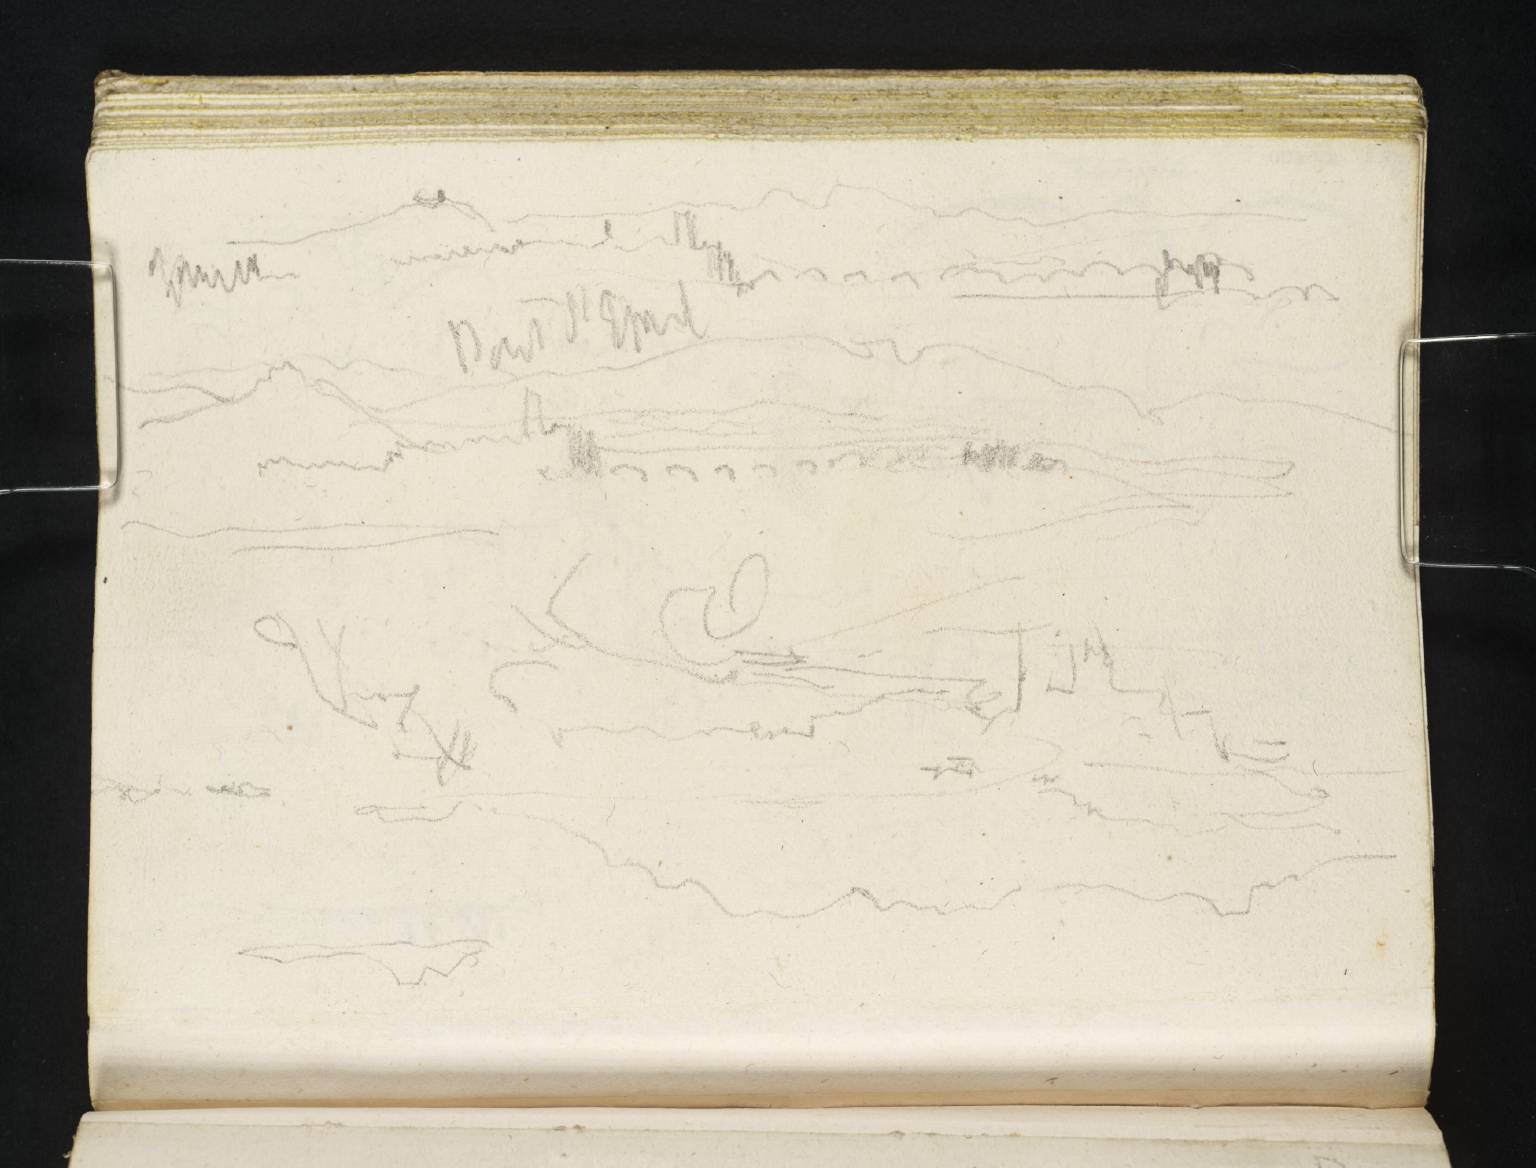 Pont St Esprit